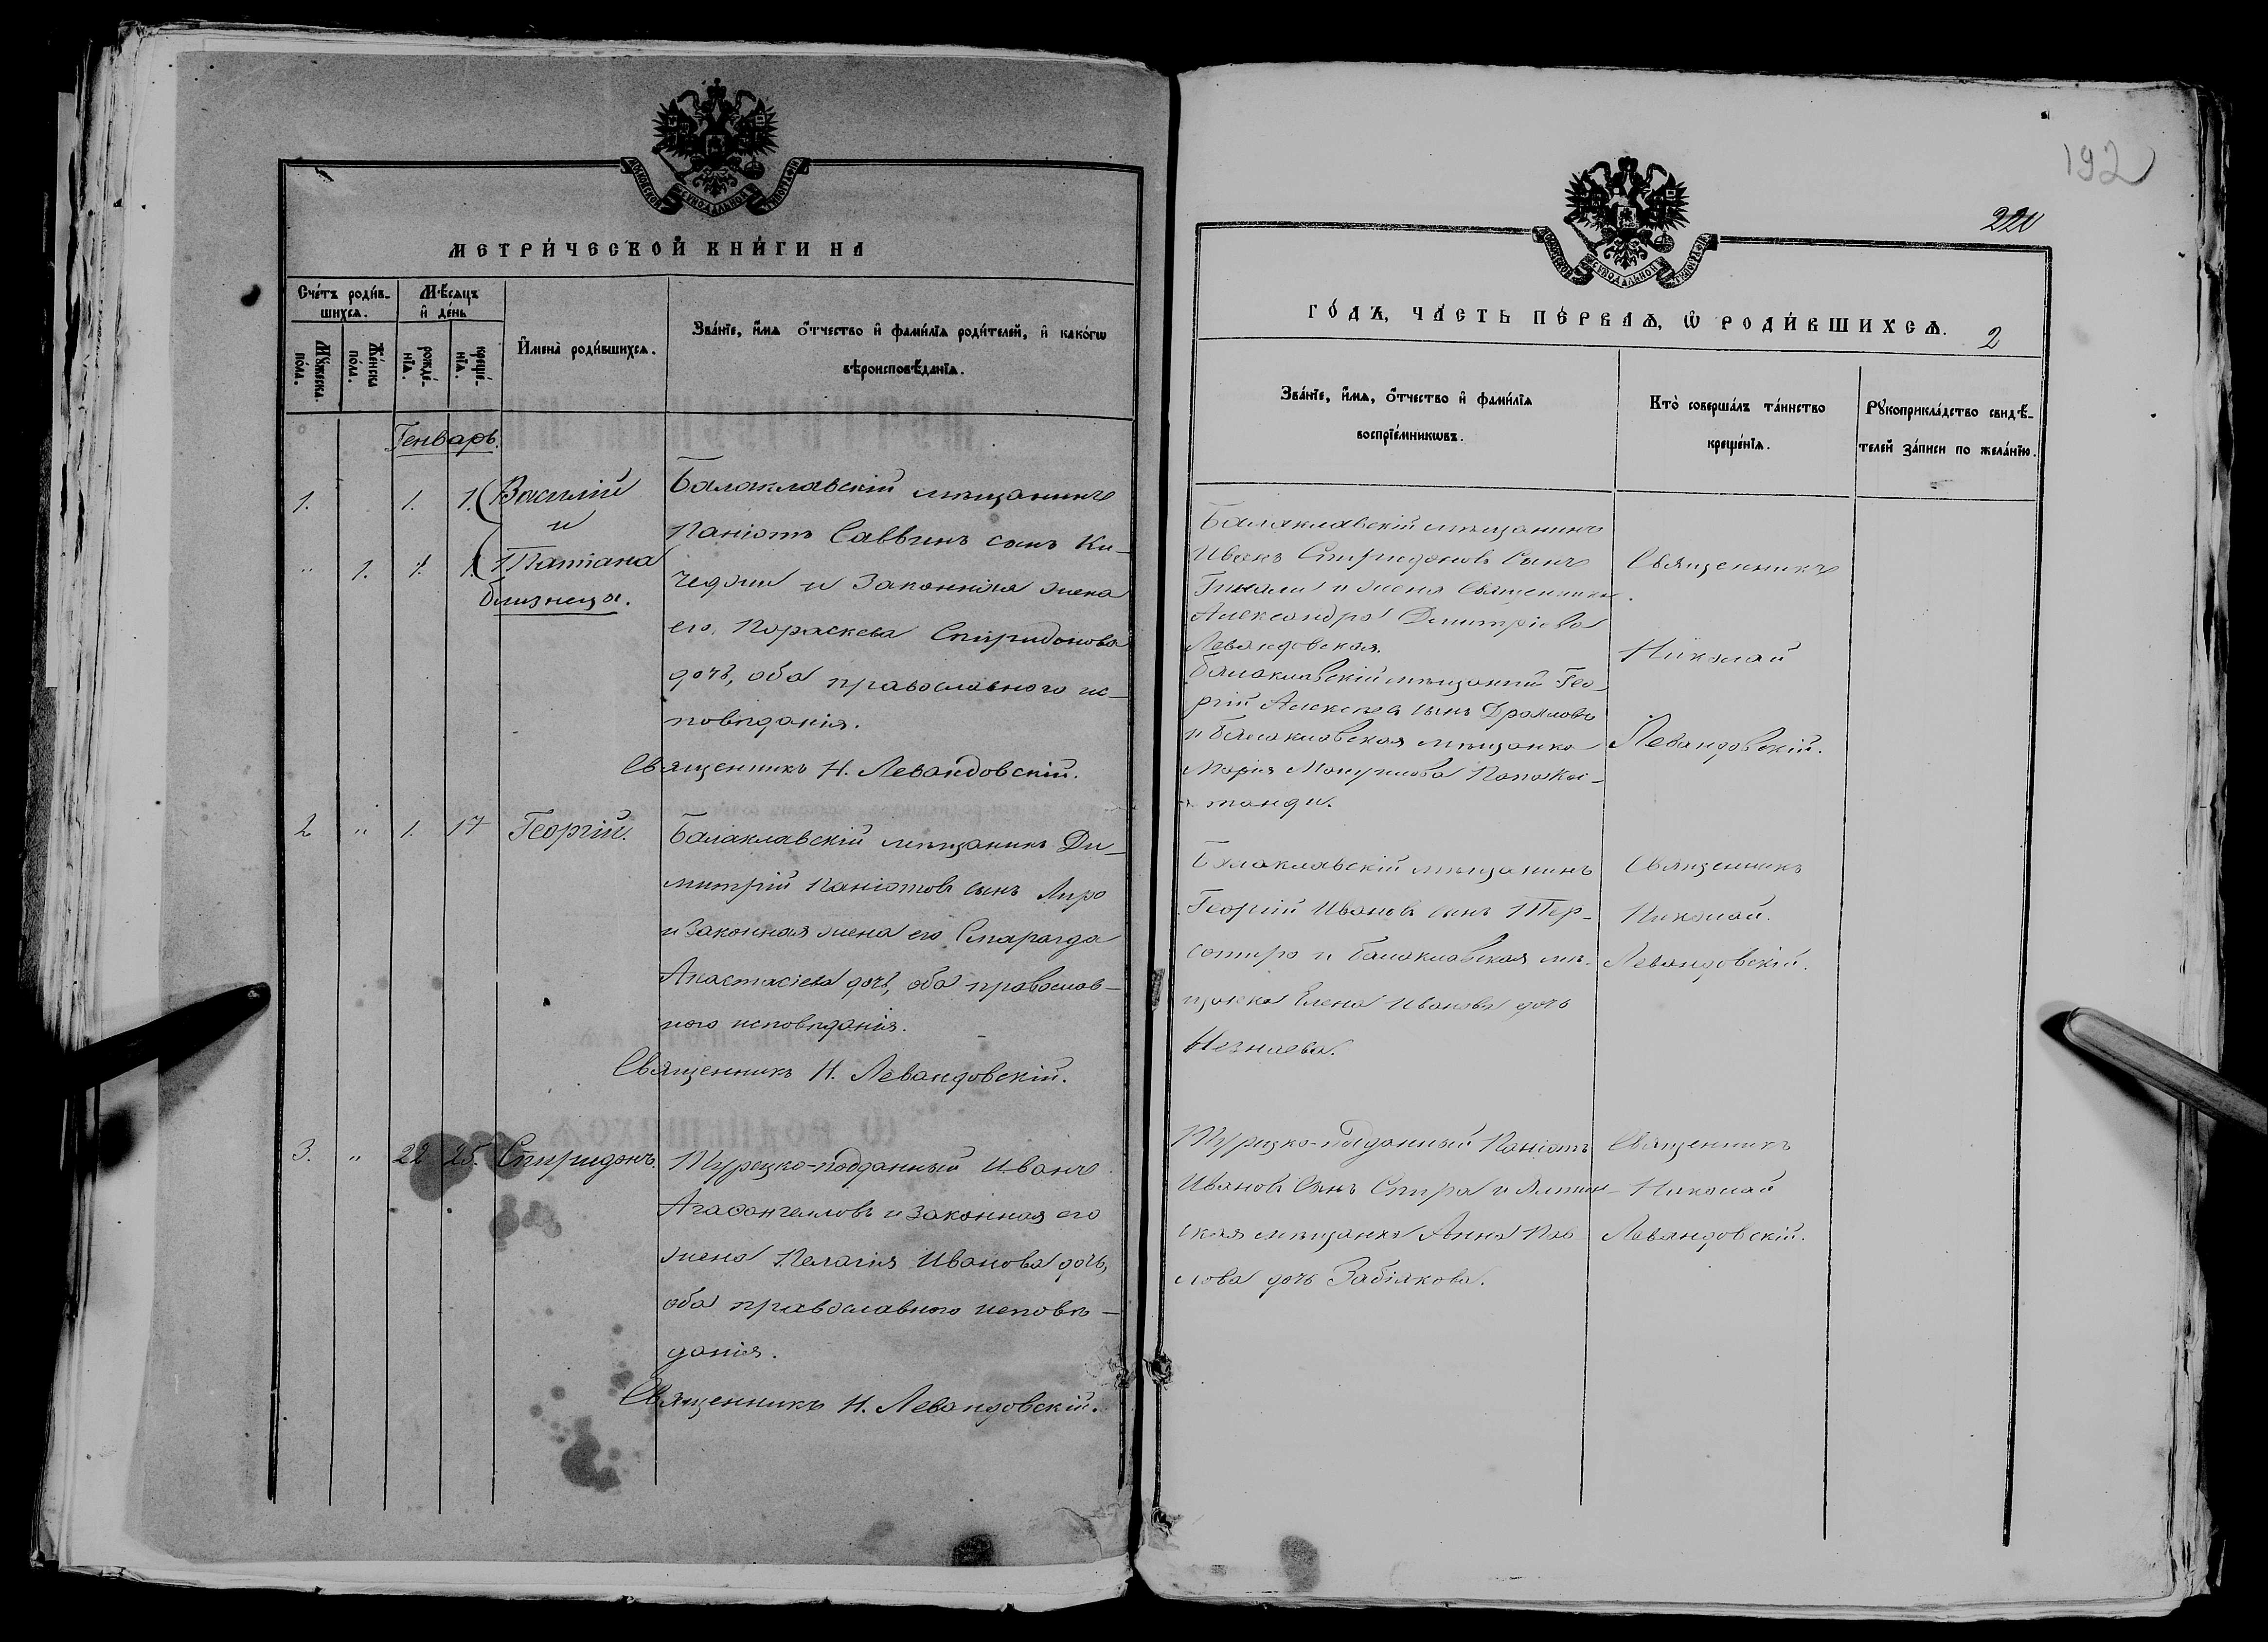 МОСКОВСКОЙ СѴНОДАЛЬНОЙ ТИПОГРАФІИ
МЕТРИ́ЧЕСКОЙ КНИ́ГИ НА
Сче́тъ роди́в-
шихсѧ.
Мꙋ́жеска по́ла.
Же́нска по́ла.
Мѣ́сѧцъ
и҆ де́нь
рожде́-
нїѧ.
креще́-
нїѧ.
И҆мена̀ роди́вшихсѧ.
Зва́нїе, и҆́мѧ ѻ҆́тчество и҆ фами́лїѧ роди́телей, и҆ како́гѡ
вѣроисповѣ́данїѧ.
Генварь.
1. 1. 1. Василій
и
" 1. 1. 1. Татіана
близнецы.
Балаклавскій мѣщанинъ
Паніотъ Саввинъ сынъ Ки-
и законная жена
его Параскева Спиридонова
дочь, оба православнаго ис-
повѣданія.
Священникъ Н. Левандовскій.
2 " 1. 17 Георгій.
Балаклавскій мѣщанинъ Ди-
митрій Паніотовъ сынъ Лиро
и законная жена его Смарагда
Анастасіева дочь, оба православ-
наго исповѣданія.
Священникъ Н. Левандовскій.
3. " 22 25. Спиридонъ.
Турецко-подданный Иванъ
Агафангеловъ и законная его
жена Пелагія Иванова дочь,
оба православнаго исповѣ-
данія.
Священникъ Н. Левандовскій.
192
220
МОСКОВСКОЙ СѴНОДАЛЬНОЙ ТИПОГРАФІИ
ГО́ДЪ, ЧА́СТЬ ПЕ́РВАѦ, Ѡ҆ РОДИ́ВШИХСѦ.
2
Зва́нїе, и҆́мѧ, ѻ҆́тчество и҆ фами́лїѧ
воспрїе́мникѡвъ.
Кто̀ соверша́лъ та́инство
креще́нїѧ.
Рꙋкоприкла́дство свидѣ́-
телей за́писи по жела́нїю.
Балаклавскій мѣщанинъ
Иванъ Спиридоновъ сынъ
Гинали и жена священника
Александра Димитріева
Левандовская.
Балаклавскій мѣщанинъ Гео-
ргій Алексѣевъ сынъ
и Балаклавская мѣщанка
Марія
Священникъ
Николай
Левандовскій.
Балаклавскій мѣщанинъ
Георгій Ивановъ сынъ Тер-
сотиро и балаклавская мѣ-
щанка Елена Иванова дочь
Незнаева.
Священникъ
Николай.
Левандовскій.
Турецко-подданный Паніотъ
Ивановъ сынъ Спира и Ялтин-
ская мѣщанка Анна Пав
лова дочь Забіякова.
Священникъ
Николай
Левандовскій.